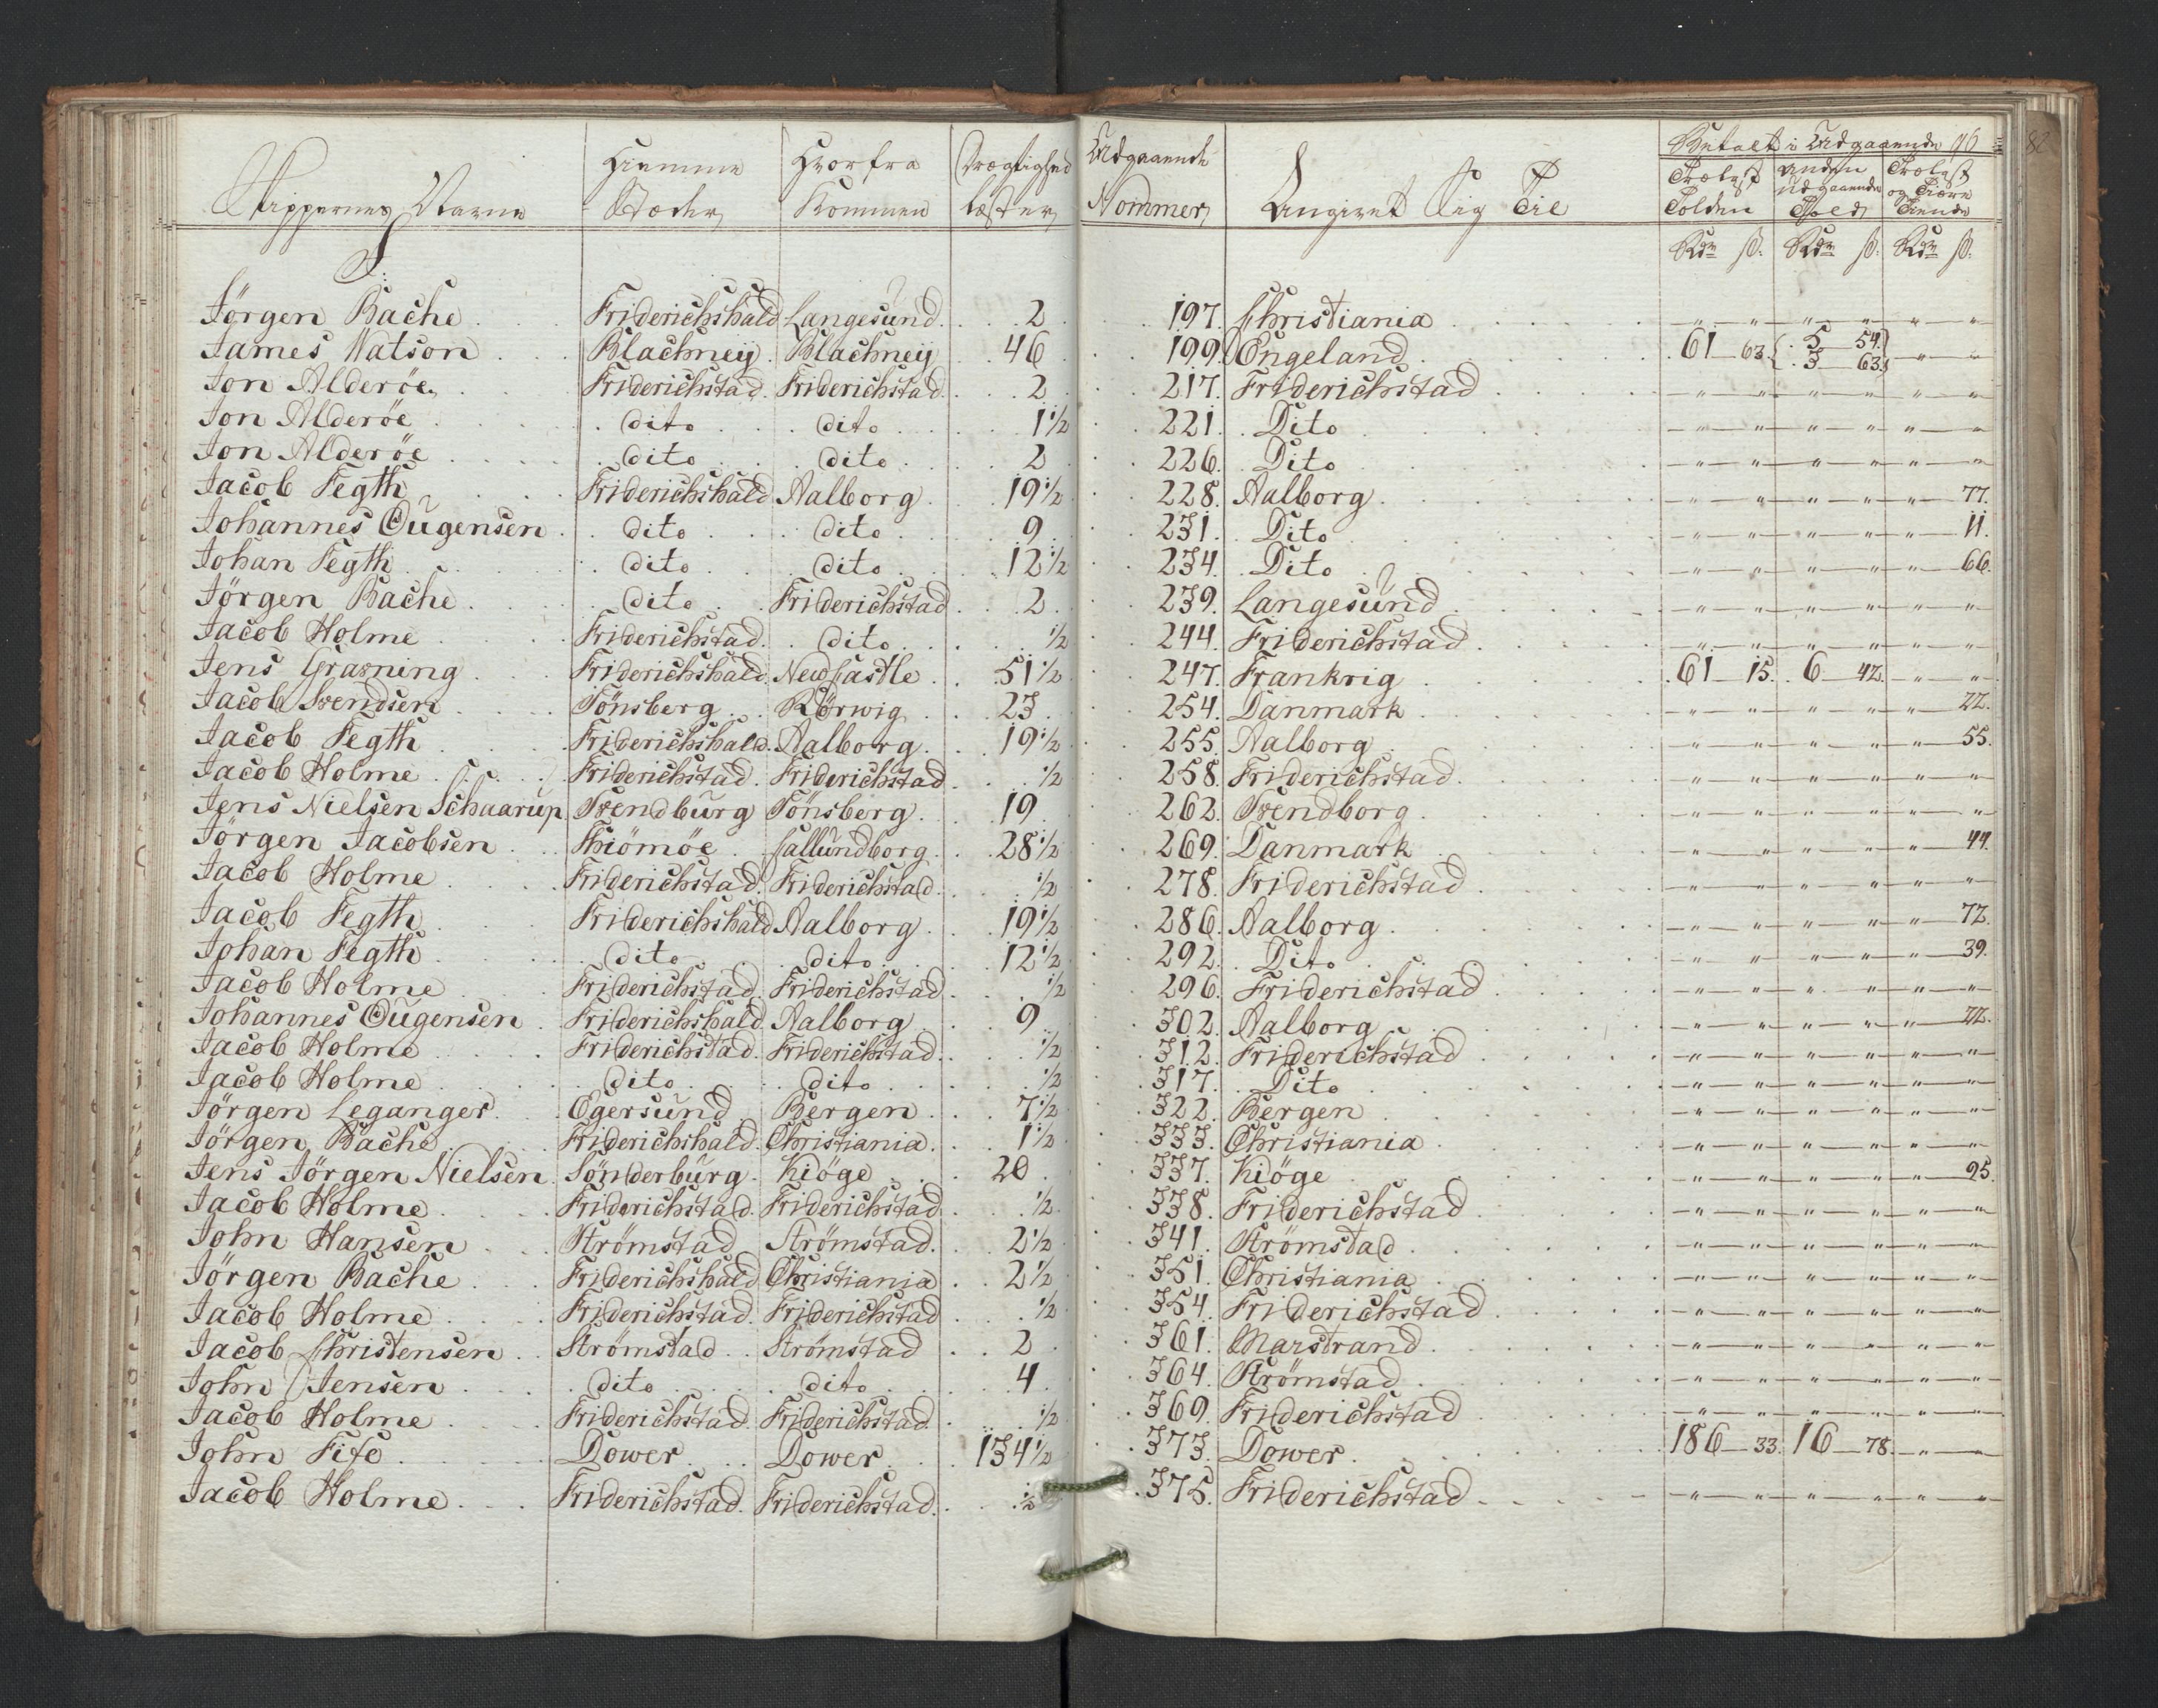 Skippernes Navne | Hiemme Stæder | Hvorfra Kommen | Drægtighed Læster | Udgaaende Nommer | Angivet Sig Til | Betalt i Udgaaende
Trælast Tolden | anden Udgaaende Told | Trælast og Tiære Tiende
82
Rdr ß. | Rdr ß. | Rdr ß.
J:
Jörgen Bache Friderichshald Langesund 2 197. Christiania " " " " " "
James Watson Blachneÿ Blachneÿ 46 199. Engeland 61 63. 5 54. 3 63. " "
Jon Alderöe Friderichstad Friderichstad 2 217. Friderichstad " " " " " "
Jon Alderöe dito dito 1 1/2 221. Dito " " " " " "
Jon Alderöe dito dito 2 226. Dito " " " " " "
Jacob Fegth Friderichshald Aalborg 19 1/2 228. Aalborg " " " " " 77.
Johannes Ougensen dito dito 9 231. Dito " " " " " 11.
Johan Fegth dito dito 12 1/2 234. Dito " " " " " 66.
Jörgen Bache dito Friderichstad 2 239. Langesund " " " " " "
Jacob Holme Friderichstad dito 1/2 244. Friderichstad " " " " " "
Jens Grarning Friderichshald NewCastle 51 1/2 247. Frankrig 61 15. 6 42. " "
Jacob Svendsen Tönsberg Rörwig 23 254. Danmark " " " " " 22.
Jacob Fegth Friderichshald Aalborg 19 1/2 255. Aalborg " " " " " 55.
Jacob Holme Friderichstad Friderichstad 1/2 258. Friderichstad " " " " " "
Jens Nielsen Schaarup Svendburg Tönsberg 19 262. Svendborg " " " " " "
Jörgen Jacobsen Thiömöe Callundborg 28 1/2 269. Danmark " " " " " 44.
Jacob Holme Friderichstad Friderichstad 1/2 278. Friderichstad " " " " " "
Jacob Fegth Friderichshald Aalborg 19 1/2 286. Aalborg " " " " " 72.
Johan Fegth dito dito 12 1/2 292. Dito " " " " " 39.
Jacob Holme Friderichstad Friderichstad 1/2 296. Friderichstad " " " " " "
Johannes Ougensen Friderichshald Aalborg 9 302. Aalborg " " " " " 22.
Jacob Holme Friderichstad Friderichstad 1/2 312. Friderichstad " " " " " "
Jacob Holme dito dito 1/2 317. Dito " " " " " "
Jörgen Leganger Egersund Bergen 7 1/2 322. Bergen " " " " " "
Jörgen Bache Friderichshald Christiania 1 1/2 333. Christiania " " " " " "
Jens Jörgen Nielsen Sönderburg Kiöge 20 337. Kiöge " " " " " 95.
Jacob Holme Friderichstad Friderichstad 1/2 338. Friderichstad " " " " " "
John Hansen Strömstad Strömstad 2 1/2 341. Strömstad " " " " " "
Jörgen Bache Friderichshald Christiania 2 1/2 351. Christiania " " " " " "
Jacob Holme Friderichstad Friderichstad 1/2 354. Friderichstad " " " " " "
Jacob Christensen Strömstad Strömstad 2 361. Marstrand " " " " " "
John Jensen dito dito 4 364. Strömstad " " " " " "
Jacob Holme Friderichstad Friderichstad 1/2 369. Friderichstad " " " " " "
John Fife Dower Dower 134 1/2 373. Dower 186 33. 16 78. " "
Jacob Holme Friderichstad Friderichstad 1/2 375. Friderichstad " " " " " "